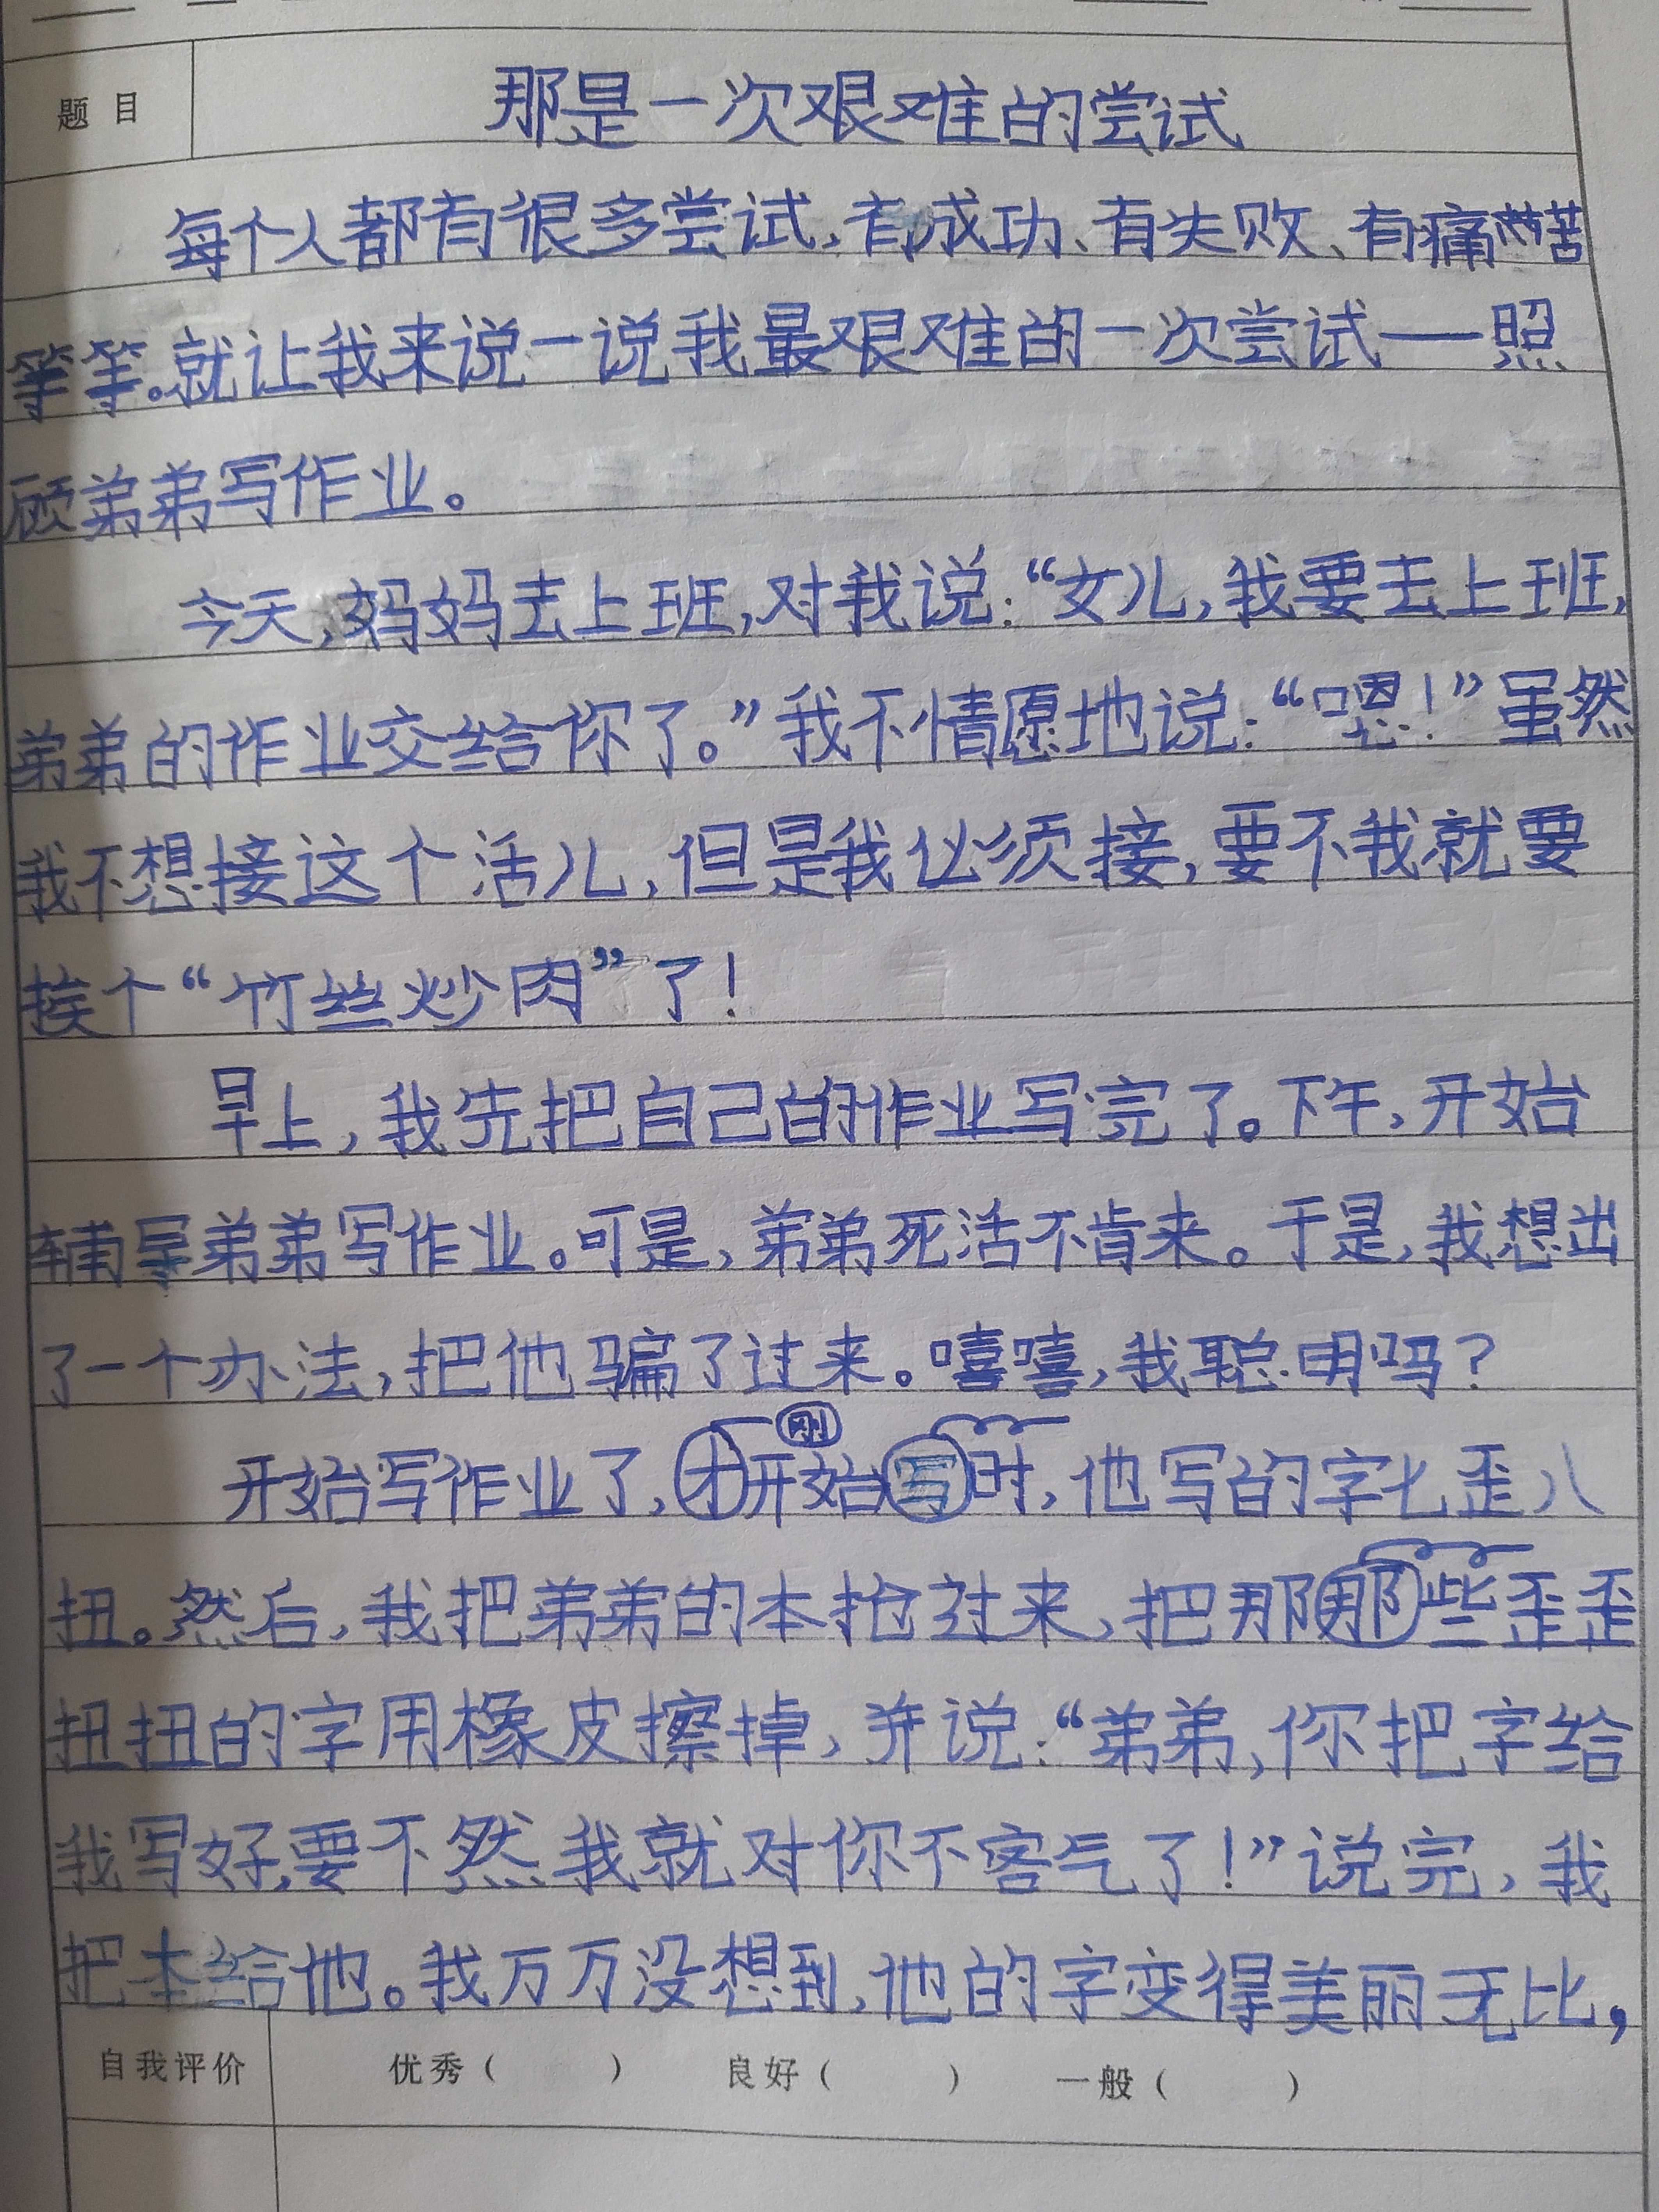 题目 那是一次艰难的尝试
每个人都有很多尝试,有成功、有失败、有痛苦
等等。就让我来说一说我最艰难的一次尝试——照
顾弟弟写作业。
今天,妈妈去上班,对我说:“女儿,我要去上班,
弟弟的作业交给你了。”我不情愿地说:“嗯!”虽然
我不想接这个活儿,但是我必须接,要不我就要
挨个“竹丝炒肉”了!
早上,我先把自己的作业写完了。下午,开始
辅导弟弟写作业。可是,弟弟死活不肯来。于是,我想出
了一个办法,把他骗了过来。嘻嘻,我聪明吗?
刚
开始写作业了,才开始写时,他写的字七歪八
扭。然后,我把弟弟的本抢过来,把那那些歪歪
扭扭的字用橡皮擦掉,并说:“弟弟,你把字给
我写好,要不然我就对你不客气了!”说完,我
把本给他。我万万没想到,他的字变得美丽无比,
自我评价 优秀( ) 良好( ) 一般( )